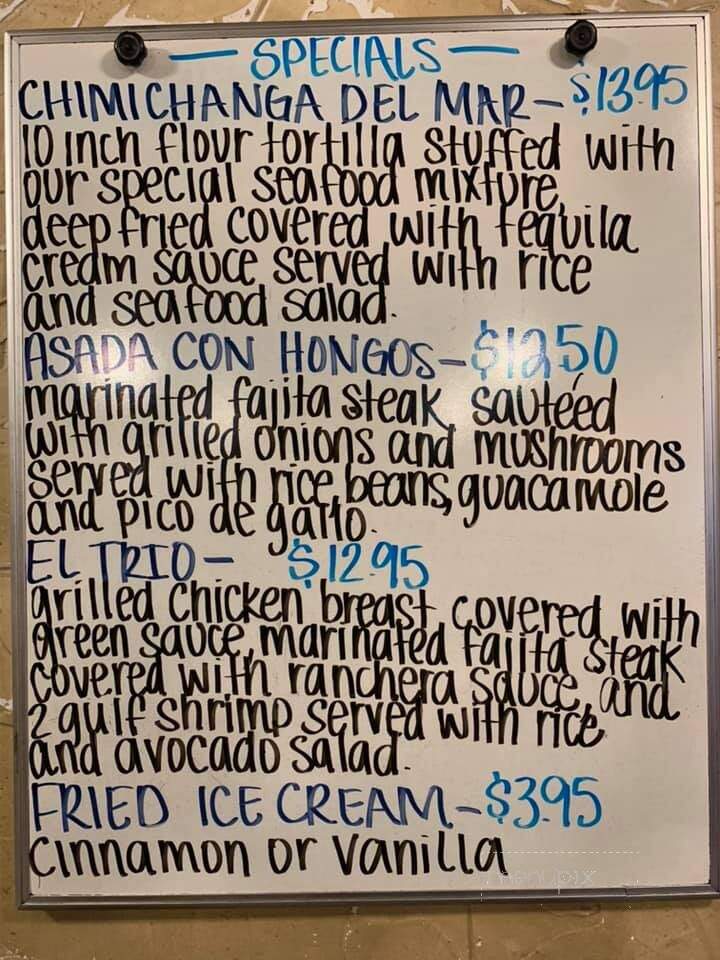 — SPECIALS —
CHIMICHANGA DEL MAR - $13.95
10 inch flour tortilla stuffed with
our special seafood mixture,
deep fried covered with tequila
cream sauce served with rice
and seafood salad.
ASADA CON HONGOS - $12.50
marinated fajita steak, sautéed
with grilled onions and mushrooms
served with rice, beans, guacamole
and pico de gallo.
EL TRIO - $12.95
grilled chicken breast, covered with
green sauce, marinated fajita steak
covered with ranchera sauce, and
2 gulf shrimp served with rice
and avocado salad.
FRIED ICE CREAM - $3.95
cinnamon or vanilla
menupix